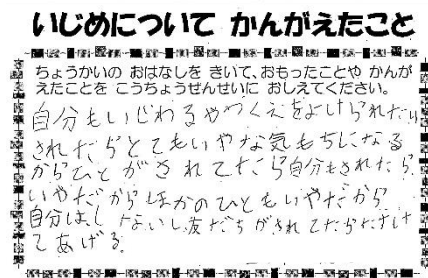 いじめについて かんがえたこと
ちょうかいの おはなしを きいて、おもったことや かんが
えたことを こうちょうせんせいに おしえてください。
自分もいじわるやつくえをよけられたり
されたらとてもいやな気もちになる
からひとがされてたら自分もされたら
いやだからほかのひともいやだから
自分はしないし友だちがされてたらたすけ
てあげる。